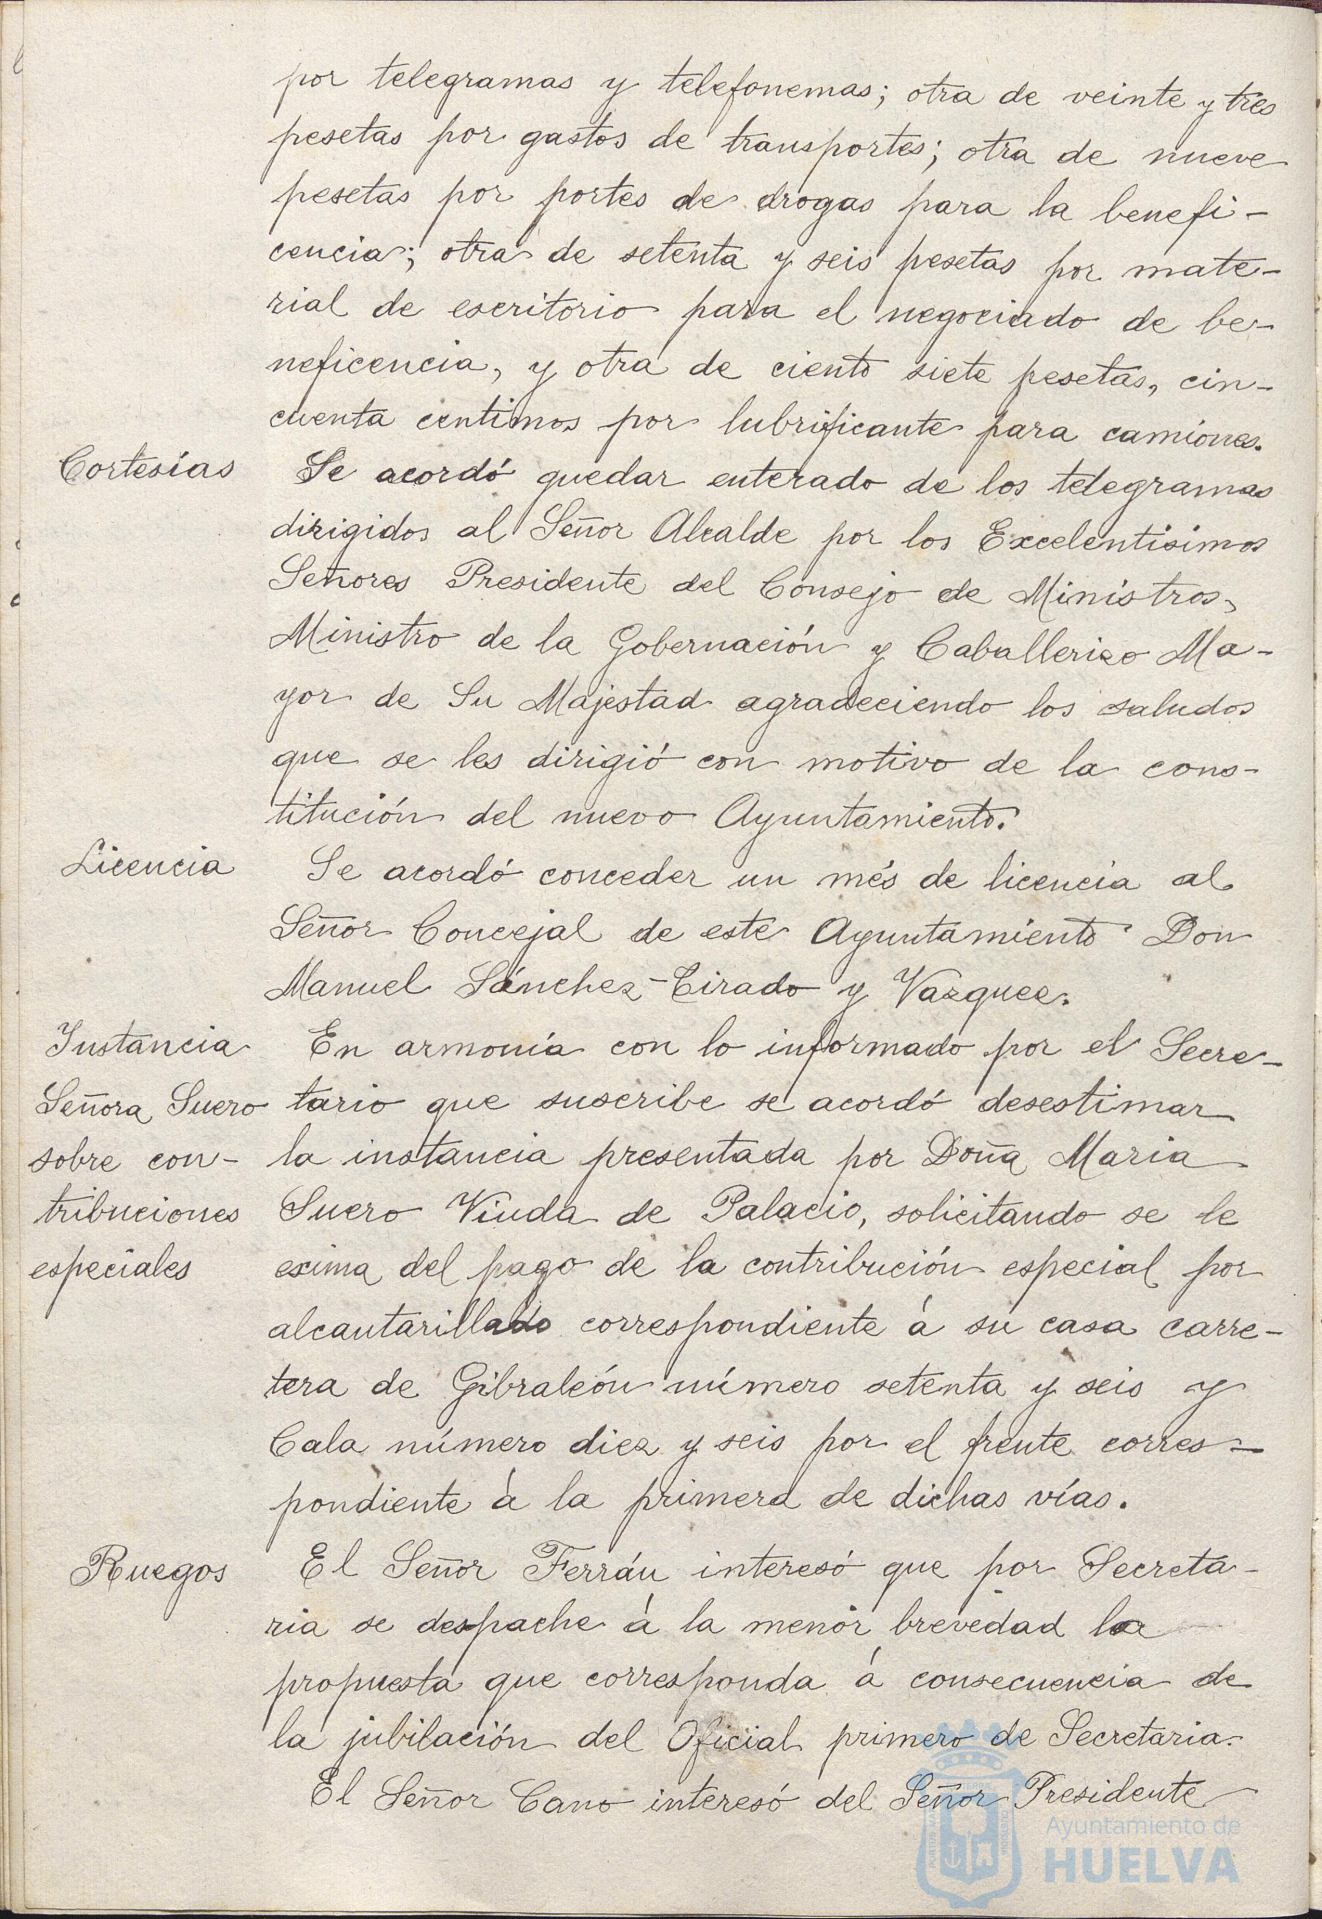 por telegramas y telefonemas; otra de veinte y tres
pesetas por gastos de transportes; otra de nueve
pesetas por portes de drogas para la benefi-
cencia; otra de setenta y seis pesetas por mate-
rial de escritorio para el negociado de be-
neficencia, y otra de ciento siete pesetas, cin-
cuenta centimos por lubrificante para camiones.
Cortesías
Se acordó quedar enterado de los telegramas
dirigidos al Señor Alcalde por los Excelentisimos
Señores Presidente del Consejo de Ministros,
Ministro de la Gobernación y Caballerizo Ma-
yor de Su Majestad agradeciendo los saludos
que se les dirigió con motivo de la cons-
titución del nuevo Ayuntamiento.
Licencia
Se acordó conceder un més de licencia al
Señor Concejal de este Ayuntamiento Don
Manuel Sánchez-Tirado y Vazquez.
Instancia
Señora Suero
sobre con-
tribuciones
especiales
En armonía con lo informado por el Secre-
tario que suscribe se acordó desestimar
la instancia presentada por Doña Maria
Suero Viuda de Palacio, solicitando se le
exima del pago de la contribución especial por
alcantarillado correspondiente á su casa carre-
tera de Gibraleón número setenta y seis y
Cala número diez y seis por el frente corres-
pondiente á la primera de dichas vías.
Ruegos
El Señor Ferrán interesó que por Secreta-
ria se despache á la menor brevedad la
propuesta que corresponda á consecuencia de
la jubilación del Oficial primero de Secretaria.
El Señor Cano interesó del Señor Presidente
Ayuntamiento de
HUELVA